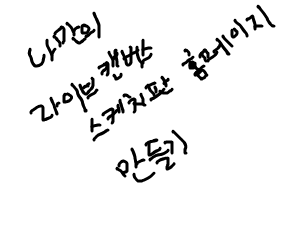 나만의
라이브 캔버스
스케치판 홈페이지
만들기